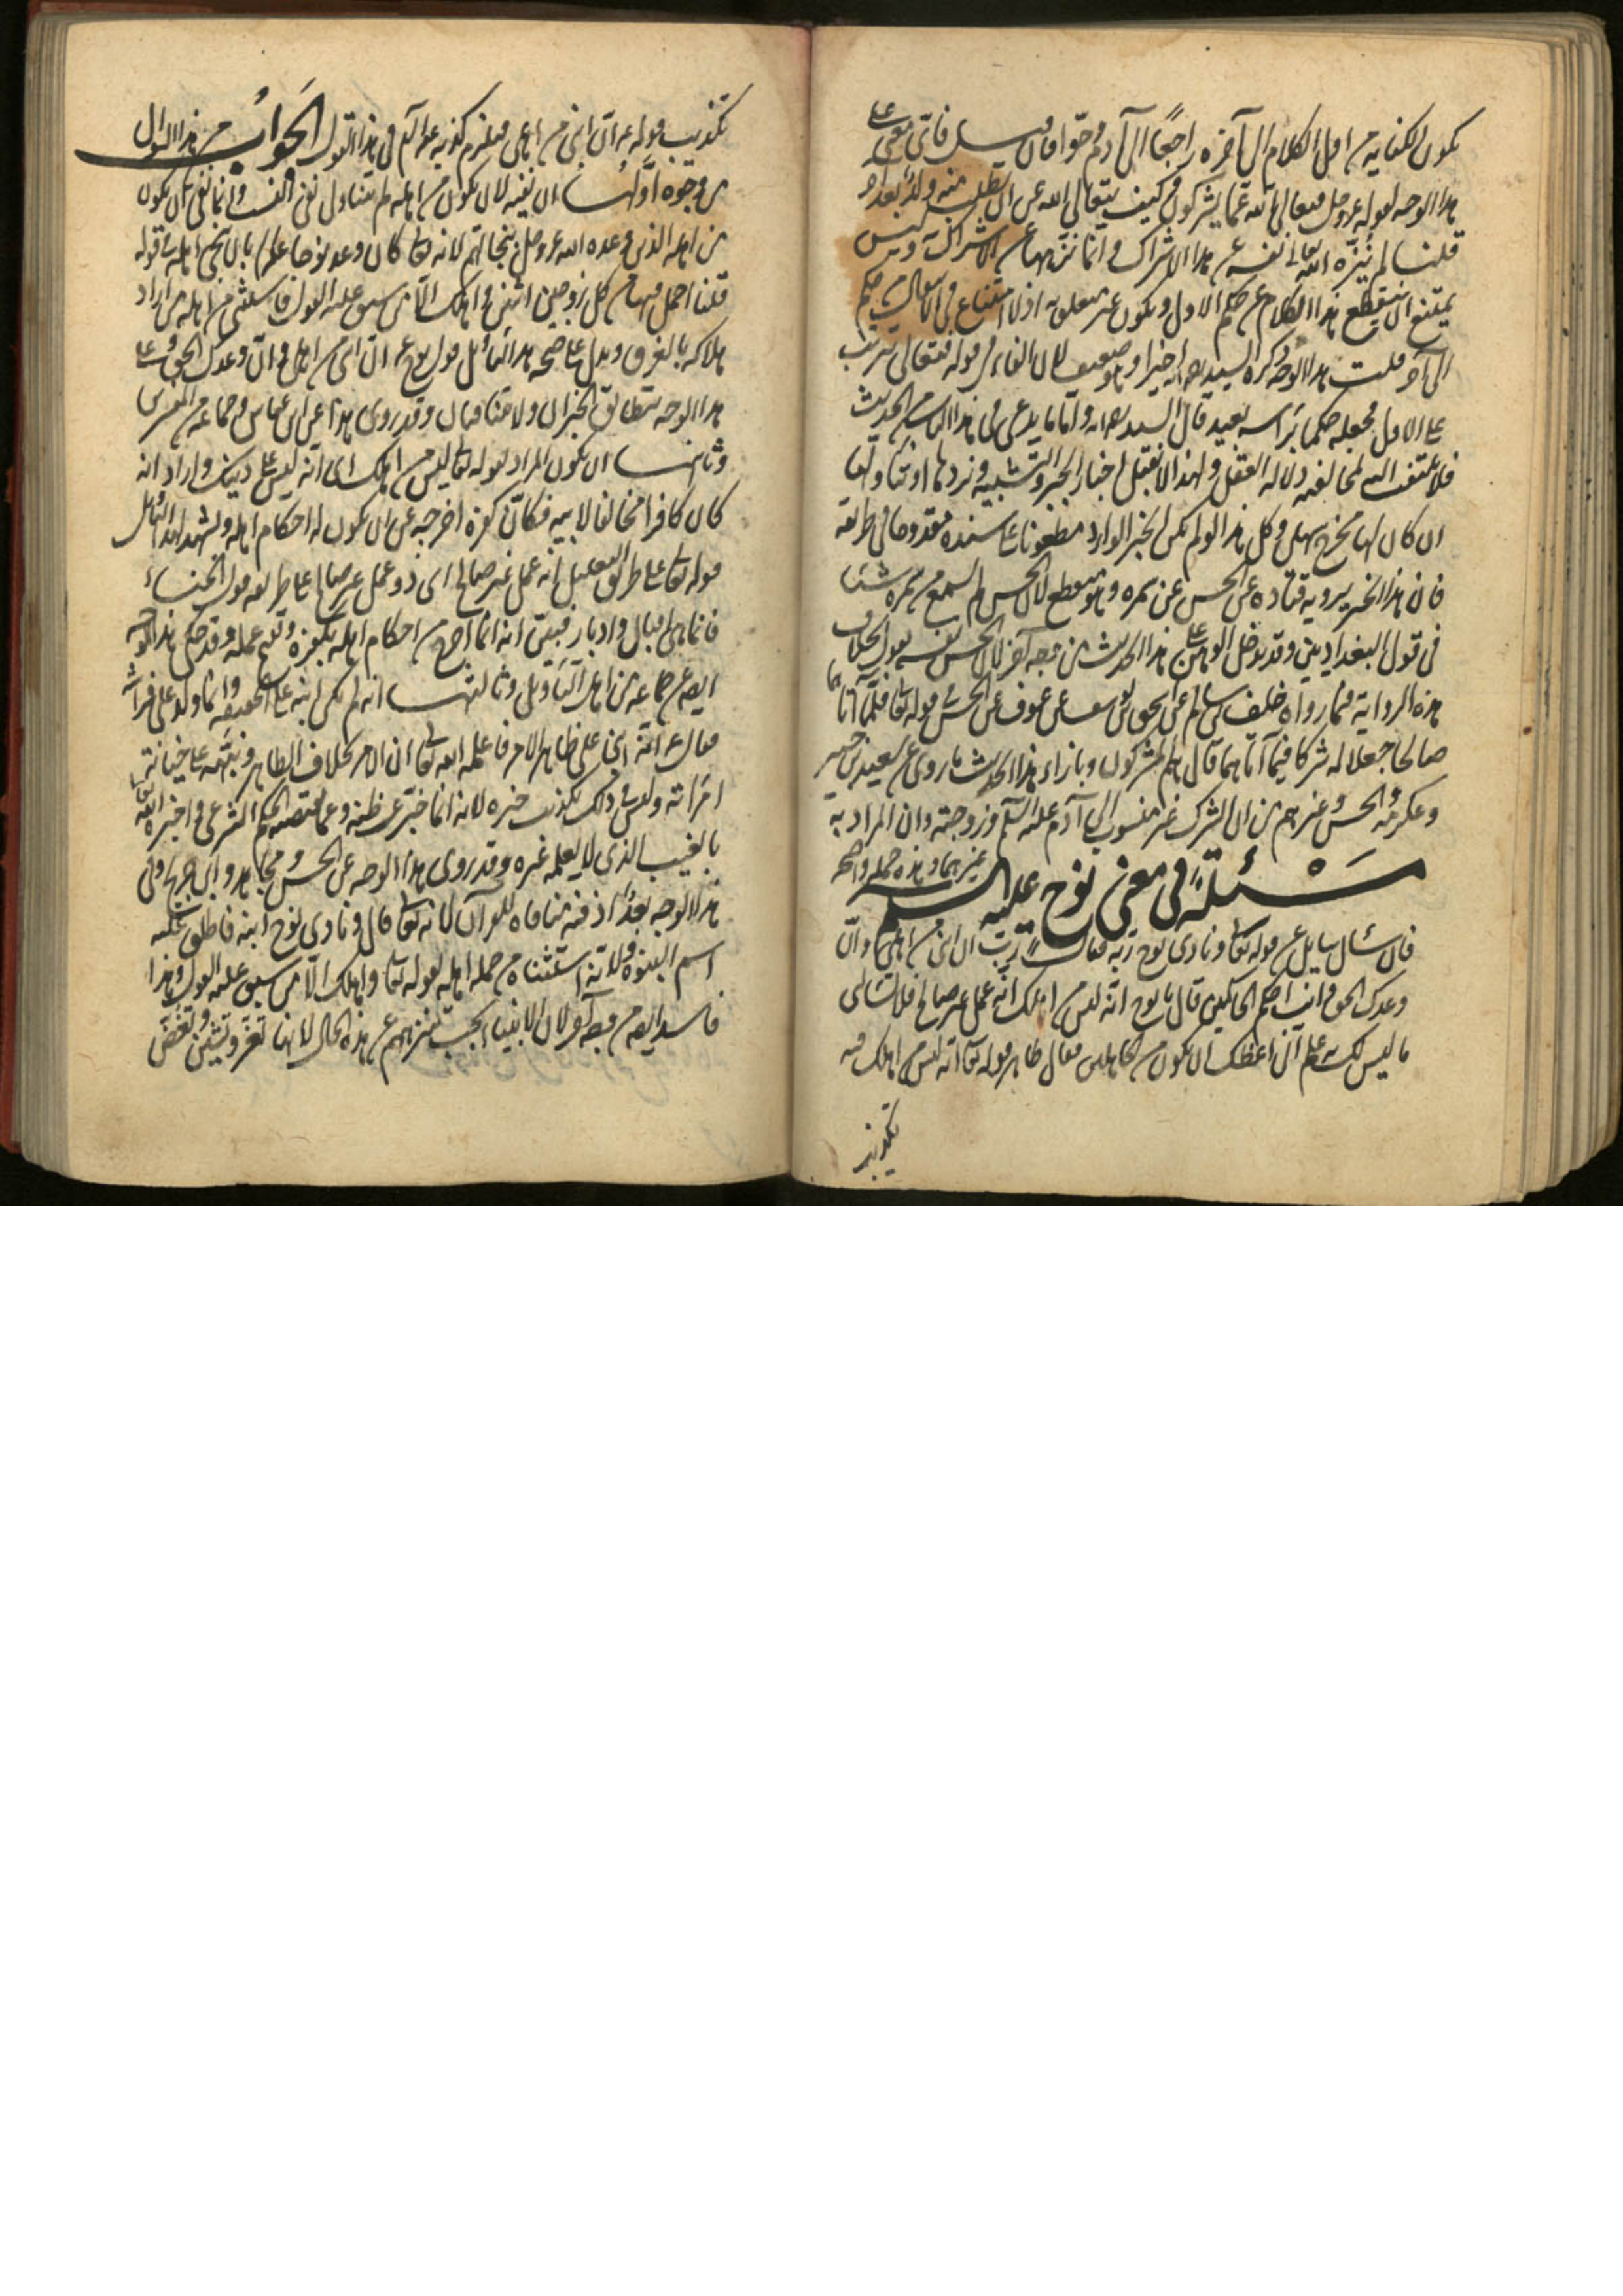 يكون الكناية من اول الكلام الى آخره راجعًا الى آدم وحوا فان قيل فاى معنى على
هذا الوجه لقوله عز وجل فتعالى الله عما يشركون وكيف يتعالى الله عن ان يطلب منه ولد بعد آخر
قلنا لم ينزه الله تعالى نفسه عن هذا الاشراك وانما نزهها عن الاشراك به وليس
يمتنع ان ينقطع هذا الكلام عن حكم الاول ويكون غير متعلق به اذ لا امتناع فى الانتقال من حكم
الى آخر قلت هذا الوجه ذكره السيد رحمه الله اخيرا وهو ضعيف لان الفاء فى قوله فتعالى ترتيب
على الاول فجعله حكما برأسه بعيد قال السيد رحمه الله واما ما يدعى فى هذا الباب من الحديث
فلا يلتفت اليه لمخالفته دلالة العقل ولهذا لا نقبل اخبار الجبر والتشبيه ونردها او نتاولها
ان كان لها مخرج سهل وكل هذا لو لم يكن الخبر الوارد مطعونا على سنده مقدوحا فى طريقه
فان هذا الخبر يرويه قتادة عن الحسن عن سمرة وهو منقطع لان الحسن لم يسمع من سمرة شيئا
فى قول البغداديين وقد يدخل الوهن على هذا الحديث من وجه آخر لان الحسن نفسه يقول بخلاف
هذه الرواية فيما رواه خلف بن سالم عن اسحق بن يوسف عن عوف عن الحسن فى قوله تعالى فلما آتاهما
صالحا جعلا له شركا فيما آتاهما قال هم المشركون وبازاء هذا الحديث ما روى عن سعيد بن جبير
وعكرمة والحسن وغيرهم من ان الشرك غير منسوب الى آدم عليه السلم وزوجته وان المراد به
غيرهما وهذه جملة واضحة
مَسْئلَة فى معنى نوح عليه السلم
فان سأل سايل عن قوله تعالى ونادى نوح ربه فقال رب ان ابنى من اهلى وان
وعدك الحق وانت احكم الحاكمين قال يا نوح انه ليس من اهلك انه عمل غير صالح فلا تسالنى
ما ليس لك به علم انى اعظك ان تكون من الجاهلين فقال ظاهر قوله تعالى انه ليس من اهلك فيه
تكذيب
تكذيب قوله ان ابنى من اهلى فيلزم كذبه فى هذا القول الجَوابُ عن هذا السؤال
من وجوه اولها ان نفيه لان يكون من اهله لم يتناول نفى النسب وانما نفى ان يكون
من اهله الذين وعده الله عز وجل بنجاتهم لانه تعالى كان وعد نوحا بان ينجى اهله فى قوله
قلنا احمل فيها من كل زوجين اثنين واهلك الا من سبق عليه القول فاستثنى من اهله من اراد
هلاكه بالغرق ويدل على صحة هذا التأويل قول نوح ان ابنى من اهلى وان وعدك الحق وعلى
هذا الوجه يتطابق الخبران ولا يتنافيان وقد روى هذا عن ابن عباس وجماعة من المفسرين
وثانيها ان يكون المراد بقوله تعالى ليس من اهلك اى انه ليس على دينك واراد انه
كان كافرا مخالفا لابيه فكان كفره اخرجه عن ان يكون له احكام اهله ويشهد لهذا التأويل
قوله تعالى على طريق التعليل انه عمل غير صالح اى ذو عمل غير صالح على طريقة قول الخنساء
فانما هى اقبال وادبار فبين انه انما اخرج من احكام اهله بكفره وقبح عمله وقد حكى هذا الوجه
ايضا عن جماعة من اهل التأويل وثالثها انه لم يكن ابنه على الحقيقة وانما ولد على فراشه
فقال انه ابنى على ظاهر الامر فاعلمه الله تعالى ان الامر بخلاف الظاهر ونبهه على خيانة
امرأته وليس فى ذلك تكذيب خبره لانه انما خبر عن ظنه وعما يقتضيه الحكم الشرعى فاخبره الله تعالى
بالغيب الذى لا يعلمه غيره وقد روى هذا الوجه عن الحسن ومجاهد وابن جريح وفى
هذا الوجه بعد اذ فيه منافاة للقرآن لانه تعالى قال ونادى نوح ابنه فاطلق عليه
اسم البنوة ولانه استثناه من جملة اهله بقوله تعالى واهلك الا من سبق عليه القول وهذا
فاسد ايضا من وجه آخر لان الانبياء يجب تنزيههم عن هذه الحال لانها تعرّ وتشين وتغضّ